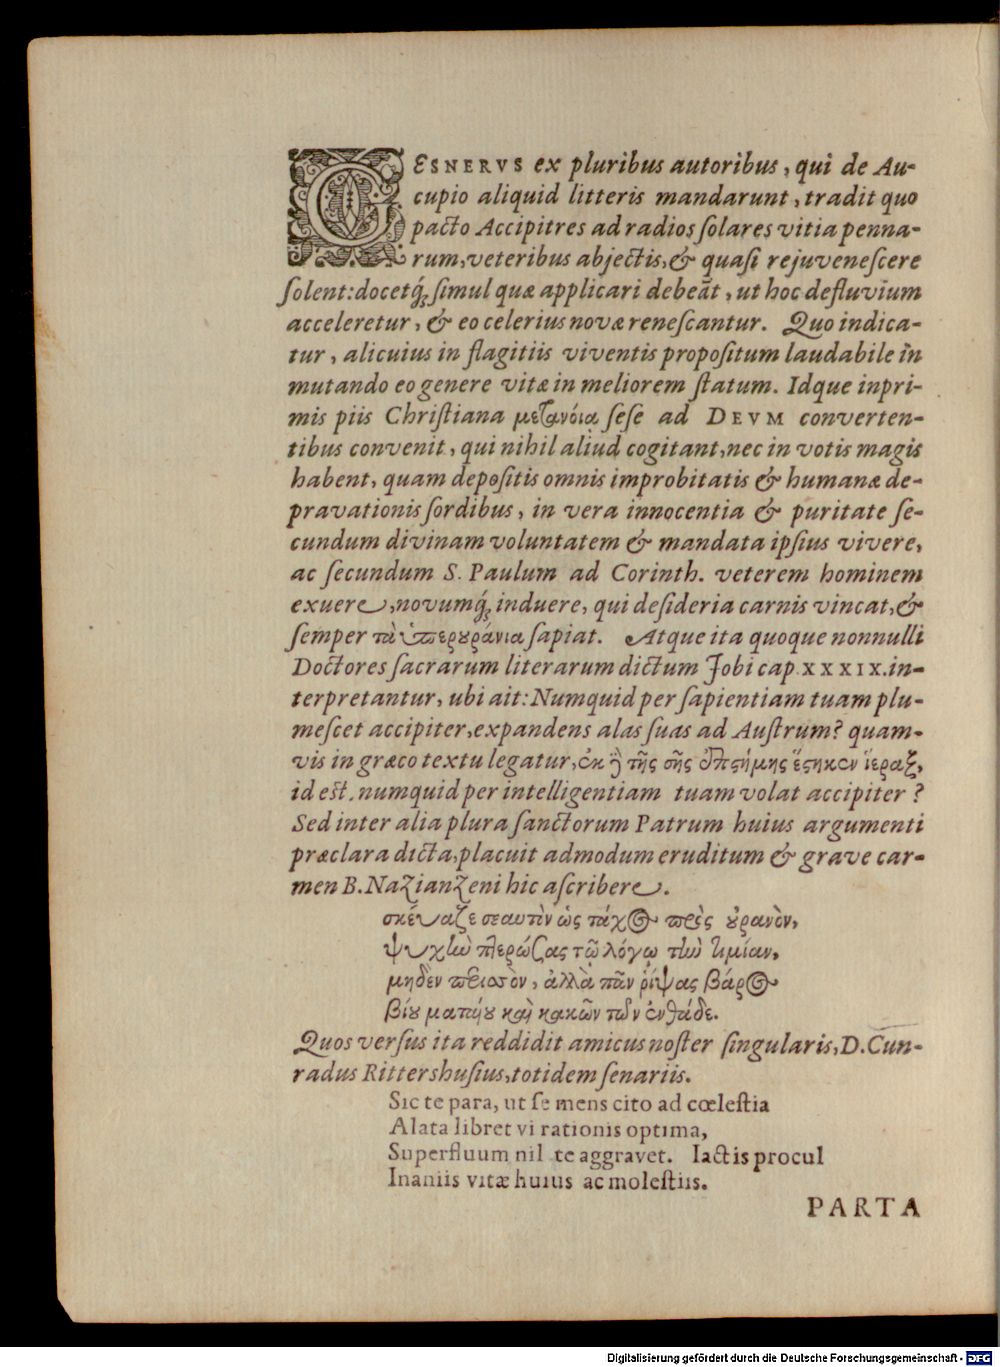 GESNERVS ex pluribus autoribus, qui de Au-
cupio aliquid litteris mandarunt, tradit quo
pacto Accipitres ad radios ſolares vitia penna-
rum, veteribus abjectis, & quaſi rejuveneſcere
ſolent: docetq́; ſimul quæ applicari debeāt, ut hoc defluvium
acceleretur, & eo celerius novæ reneſcantur. Quo indica-
tur, alicuius in flagitiis viventis propoſitum laudabile in
mutando eo genere vitæ in meliorem ſtatum. Idque inpri-
mis piis Chriſtiana μετανόια ſeſe ad DEVM converten-
tibus convenit, qui nihil aliud cogitant, nec in votis magis
habent, quam depoſitis omnis improbitatis & humanæ de-
pravationis ſordibus, in vera innocentia & puritate ſe-
cundum divinam voluntatem & mandata ipſius vivere,
ac ſecundum S. Paulum ad Corinth. veterem hominem
exuere, novumq́; induere, qui deſideria carnis vincat, &
ſemper τὰ ὑπερουράνια ſapiat. Atque ita quoque nonnulli
Doctores ſacrarum literarum dictum Jobi cap. XXXIX. in-
terpretantur, ubi ait: Numquid per ſapientiam tuam plu-
meſcet accipiter, expandens alas ſuas ad Auſtrum? quam-
vis in græco textu legatur, ἐκ ἢ τῆς σῆς ἐπιστήμης ἕστηκεν ἱέραξ,
id eſt, numquid per intelligentiam tuam volat accipiter?
Sed inter alia plura ſanctorum Patrum huius argumenti
præclara dicta, placuit admodum eruditum & grave car-
men B. Nazianzeni hic aſcribere.
σκεύαζε σεαυτὸν ὡς τάχος πρὸς οὐρανὸν,
ψυχὴν πτερώσας τῷ λόγῳ τὴν τιμίαν,
μηδὲν περισσὸν, ἀλλὰ πᾶν ῥίψας βάρος
βίου ματαίου καὶ κακῶν τῶν ἐνθάδε.
Quos verſus ita reddidit amicus noſter ſingularis, D. Cun-
radus Rittershuſius, totidem ſenariis.
Sic te para, ut ſe mens cito ad cœleſtia
Alata libret vi rationis optima,
Superfluum nil te aggravet. Iactis procul
Inaniis vitæ huius ac moleſtiis.
PARTA
Digitalisierung gefördert durch die Deutsche Forschungsgemeinschaft - DFG